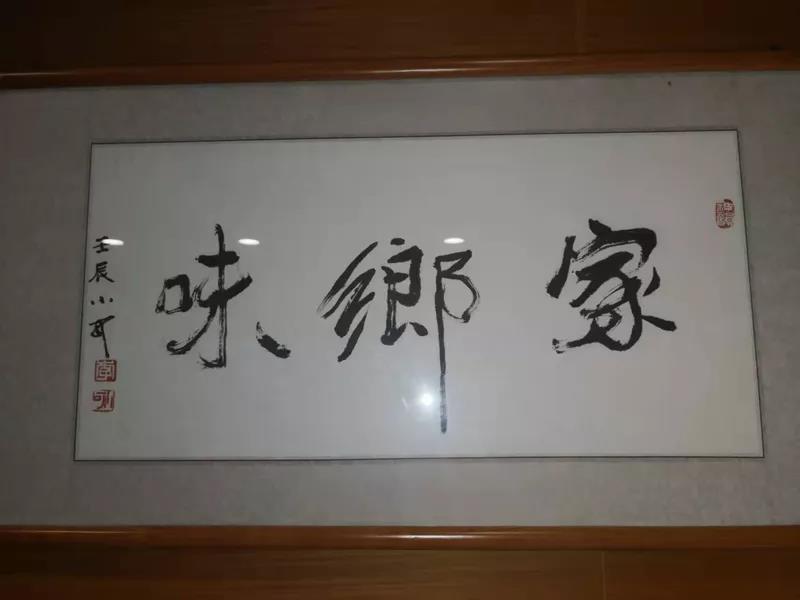 家鄉味
壬辰小